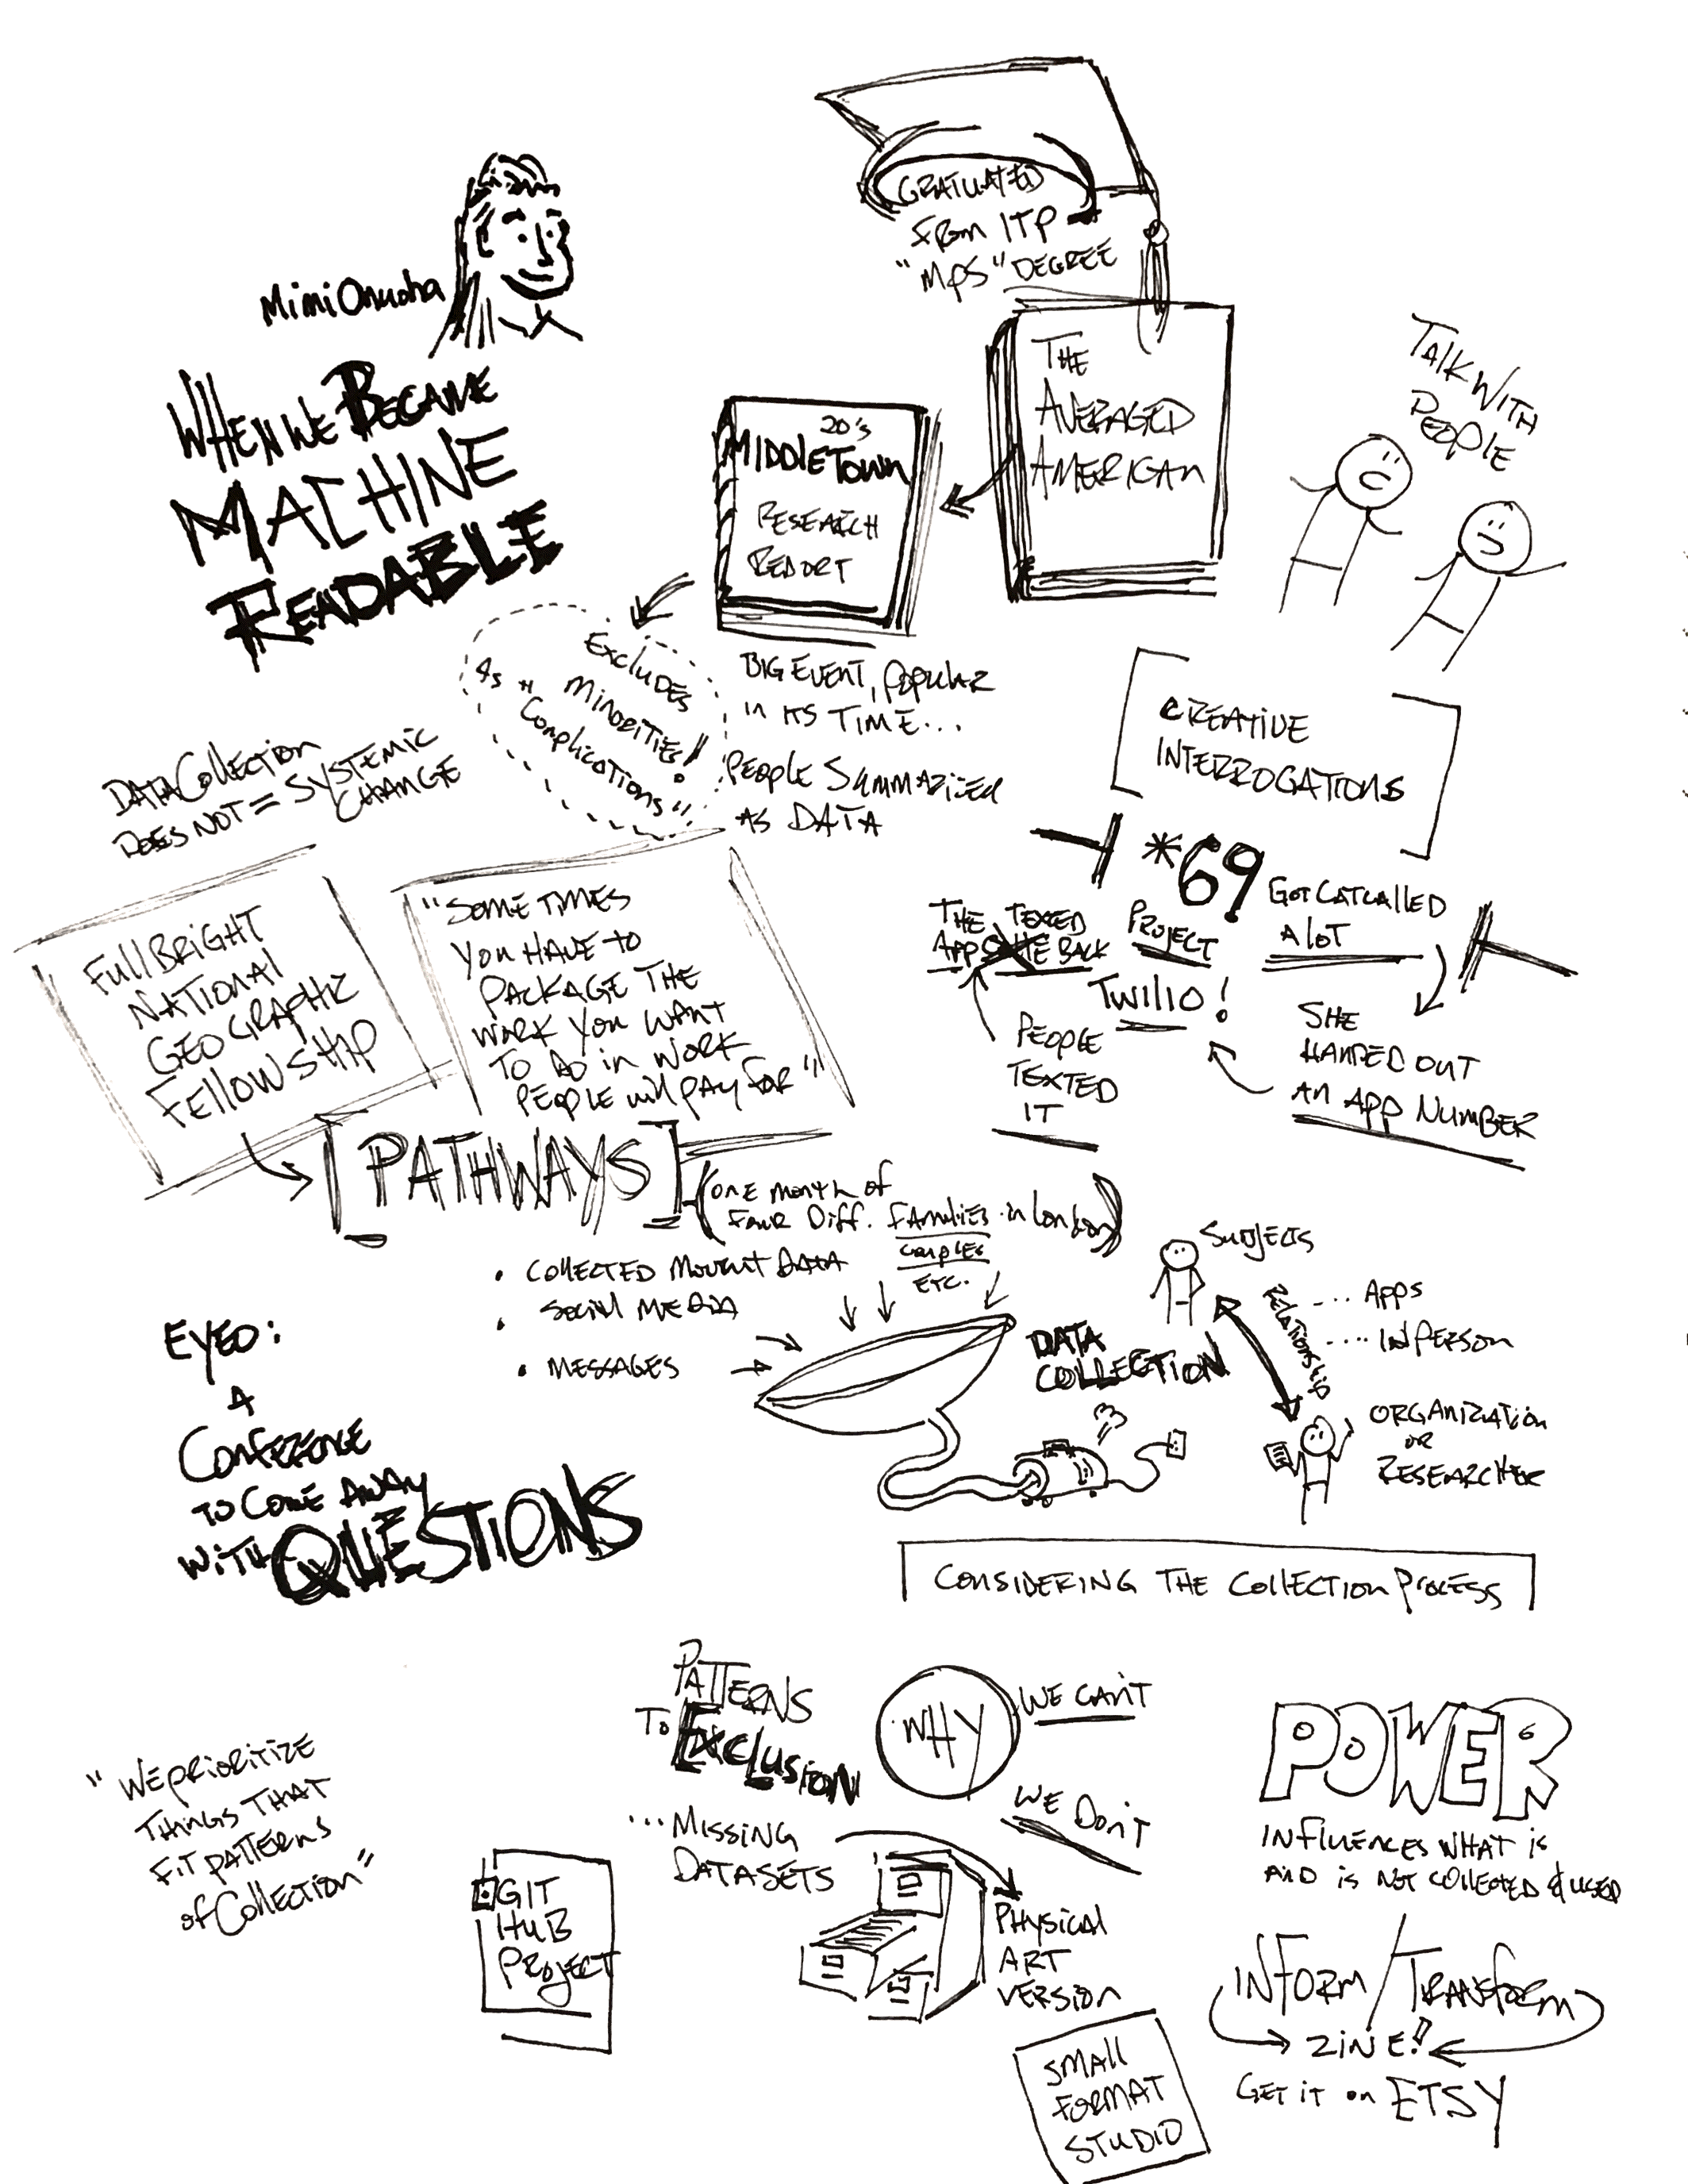 Mimi Onuoha
WHEN WE BECAME
MACHINE
READABLE
GRATUATED
FROM ITP
"MPS" DEGREE
THE
AVERAGED
AMERICAN
20's
MIDDLETOWN
RESEARCH
REPORT
TALK WITH
PEOPLE
EXCLUDES
MINORITIES!
AS "
COMPLICATIONS"
BIG EVENT, POPULAR
IN ITS TIME...
PEOPLE SUMMARIZED
AS DATA
DATA COLLECTION
DOES NOT = SYSTEMIC
CHANGE
CREATIVE
INTERROGATIONS
*69
PROJECT
GOT CATCALLED
A LOT
SHE
HANDED OUT
AN APP NUMBER
TWILIO!
THE TEXTED
APP BACK
PEOPLE
TEXTED
IT
FULLBRIGHT
NATIONAL
GEOGRAPHIC
FELLOWSHIP
"SOMETIMES
YOU HAVE TO
PACKAGE THE
WORK YOU WANT
TO DO IN WORK
PEOPLE WILL PAY FOR"
[PATHWAYS]
(ONE MONTH OF
FOUR DIFF. FAMILIES IN LONDON)
COUPLES
ETC.
• COLLECTED MOVEMENT DATA
• SOCIAL MEDIA
• MESSAGES
DATA
COLLECTION
SUBJECTS
RELATIONSHIP
... APPS
.... IN PERSON
ORGANIZATION
OR
RESEARCHER
CONSIDERING THE COLLECTION PROCESS
EYEO:
A
CONFERENCE
TO COME AWAY
WITH QUESTIONS
"WE PRIORITIZE
THINGS THAT
FIT PATTERNS
OF COLLECTION"
PATTERNS
TO EXCLUSION
...MISSING
DATASETS
WHY
WE CAN'T
WE DON'T
GIT
HUB
PROJECT
PHYSICAL
ART
VERSION
POWER
INFLUENCES WHAT IS
AND IS NOT COLLECTED & USED
INFORM/TRANSFORM
ZINE!
GET IT ON ETSY
SMALL
FORMAT
STUDIO